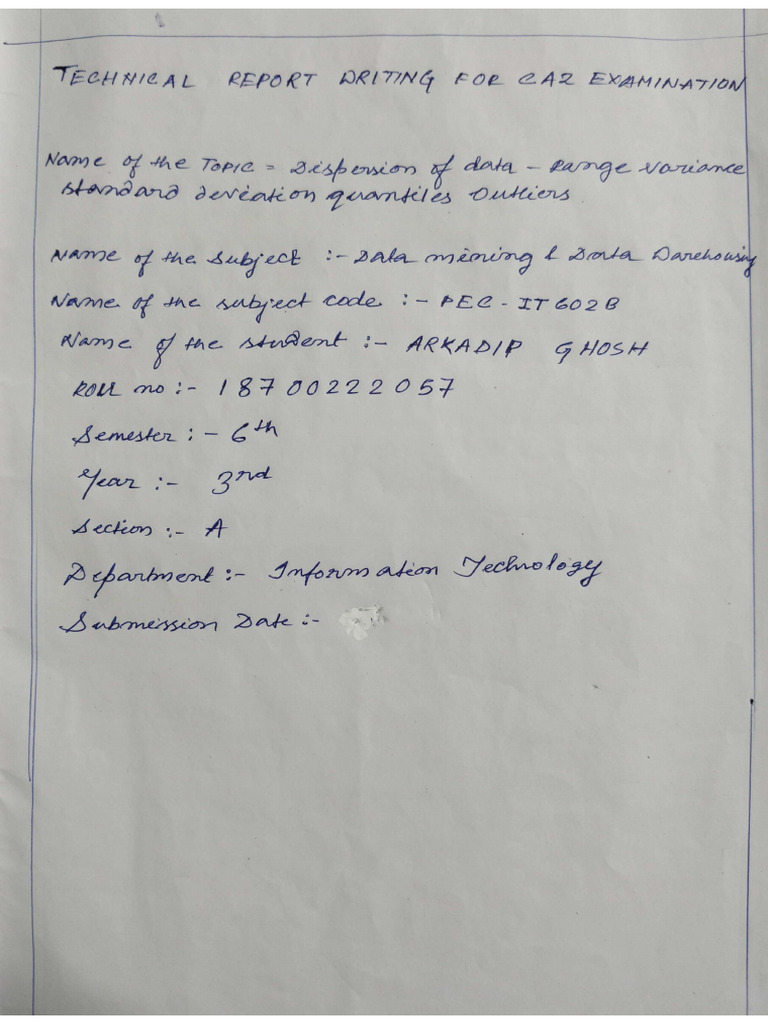 TECHNICAL REPORT WRITING FOR CA2 EXAMINATION
Name of the TOPIC = Dispersion of data - Range variance
standard deviation quantiles outliers
Name of the subject :- Data mining & Data Warehousing
Name of the subject code :- PEC-IT602B
Name of the student :- ARKADIP GHOSH
ROLL no :- 18700222057
Semester :- 6th
Year :- 3rd
Section :- A
Department :- Information Technology
Submission Date :-